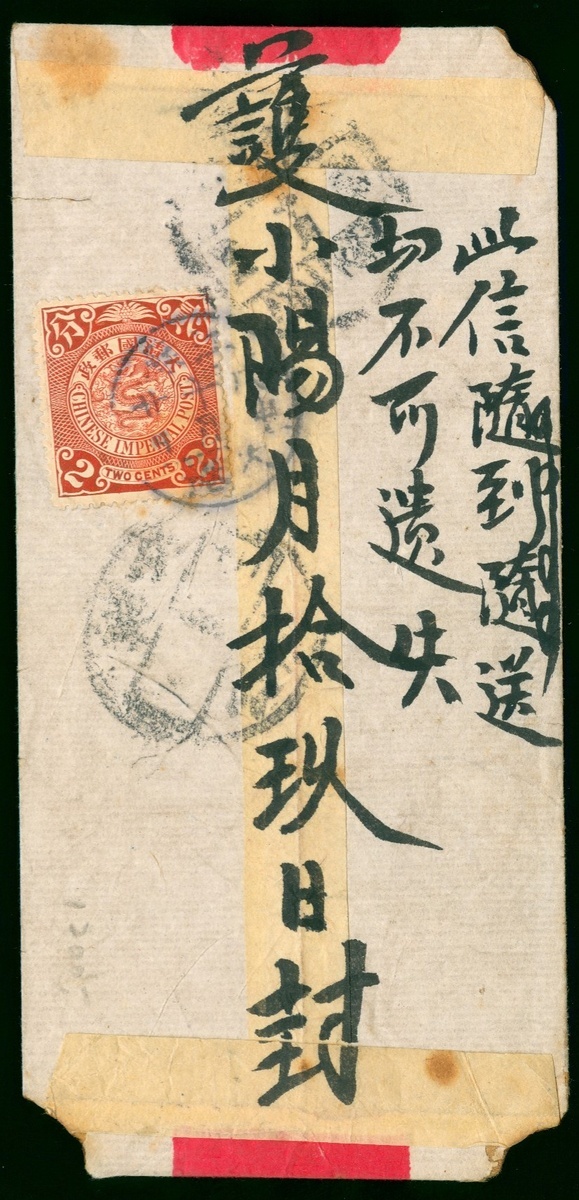 此信隨到隨送
切不可遗失
護小陽月拾玖日封
大清國郵政
CHINESE IMPERIAL POST
2 TWO CENTS 2